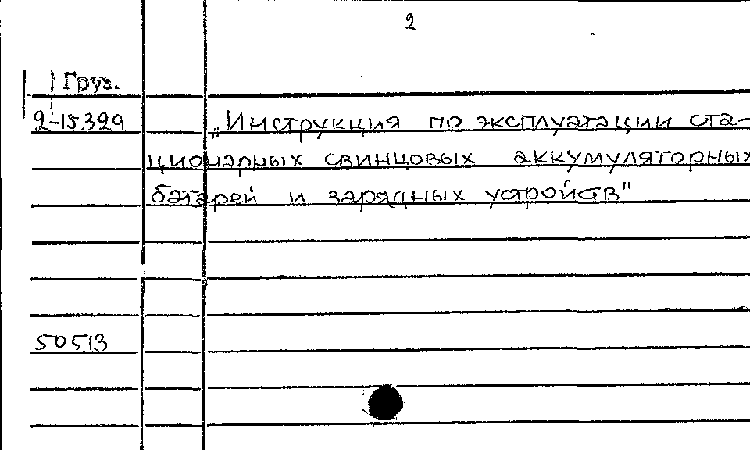 2
Груз.
2-15329 „Инструкция по эксплуатации ста-
ционарных свинцовых аккумуляторных
батарей и зарядных устройств"
50513